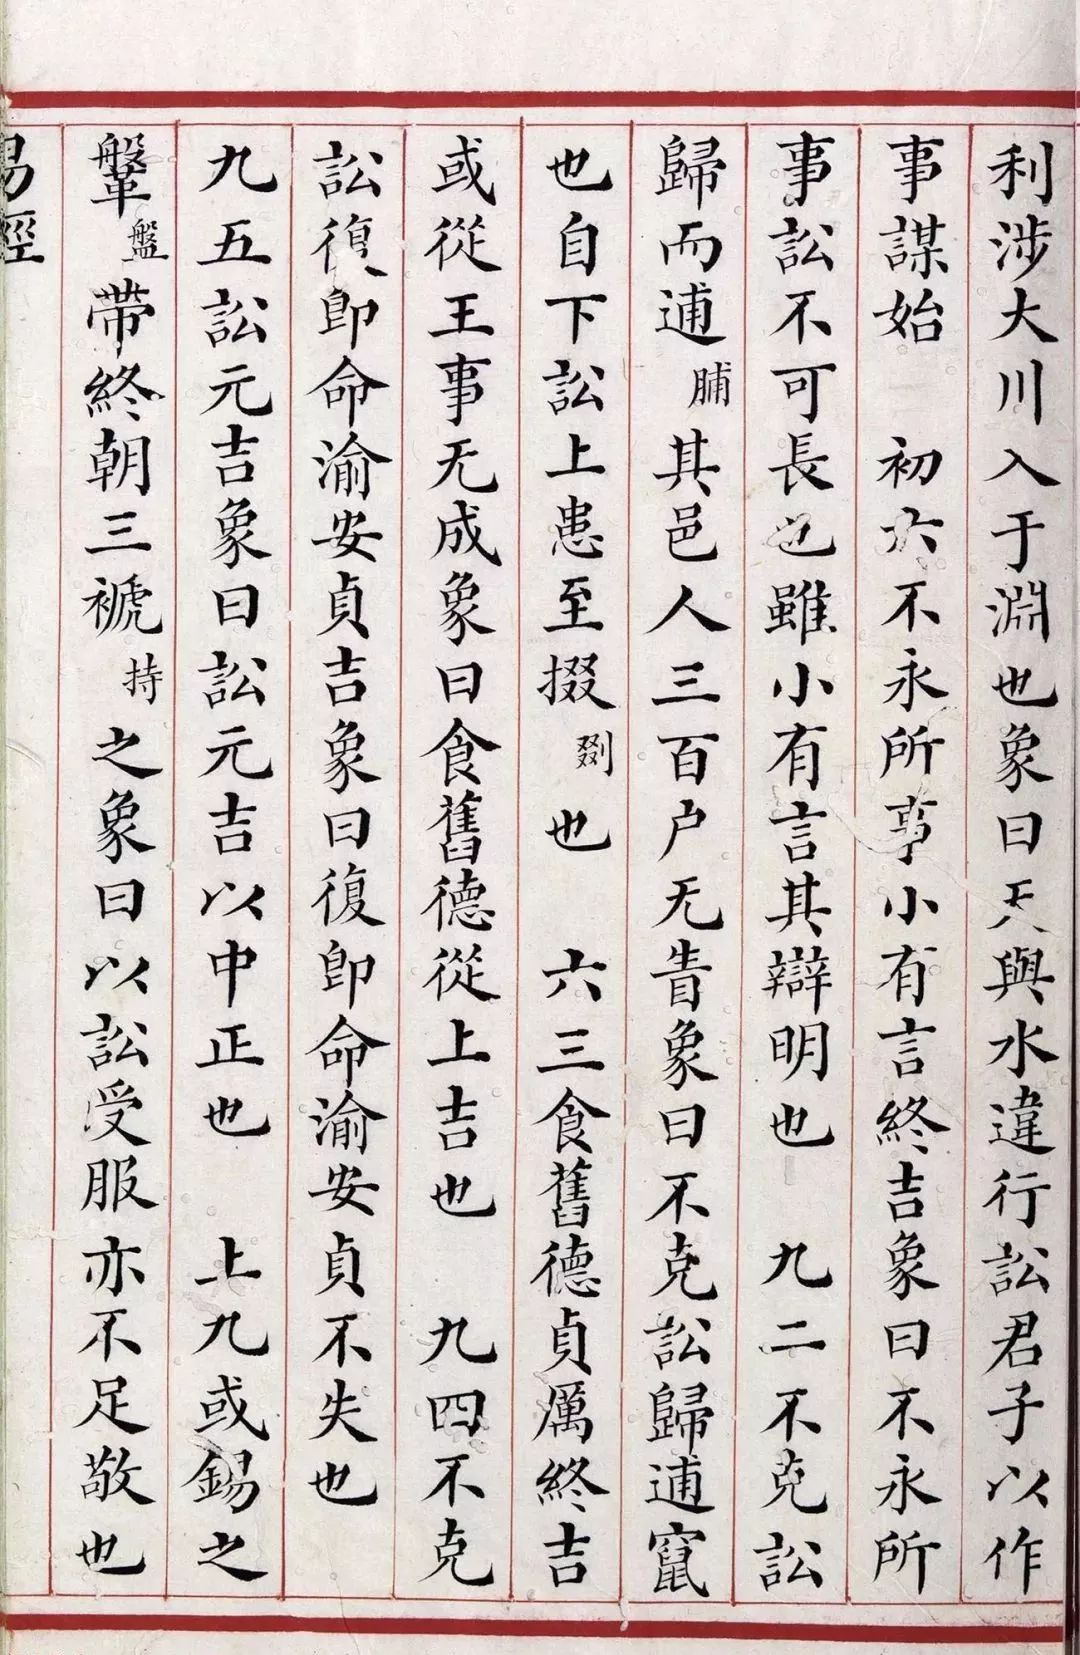 利涉大川入于淵也象曰天與水違行訟君子以作
事謀始　初六不永所事小有言終吉象曰不永所
事訟不可長也雖小有言其辯明也　九二不克訟
歸而逋脯其邑人三百户无眚象曰不克訟歸逋竄
也自下訟上患至掇剟也　六三食舊德貞厲終吉
或從王事无成象曰食舊德從上吉也　九四不克
訟復即命渝安貞吉象曰復即命渝安貞不失也
九五訟元吉象曰訟元吉以中正也　上九或錫之
鞶盤帶終朝三褫持之象曰以訟受服亦不足敬也
易經